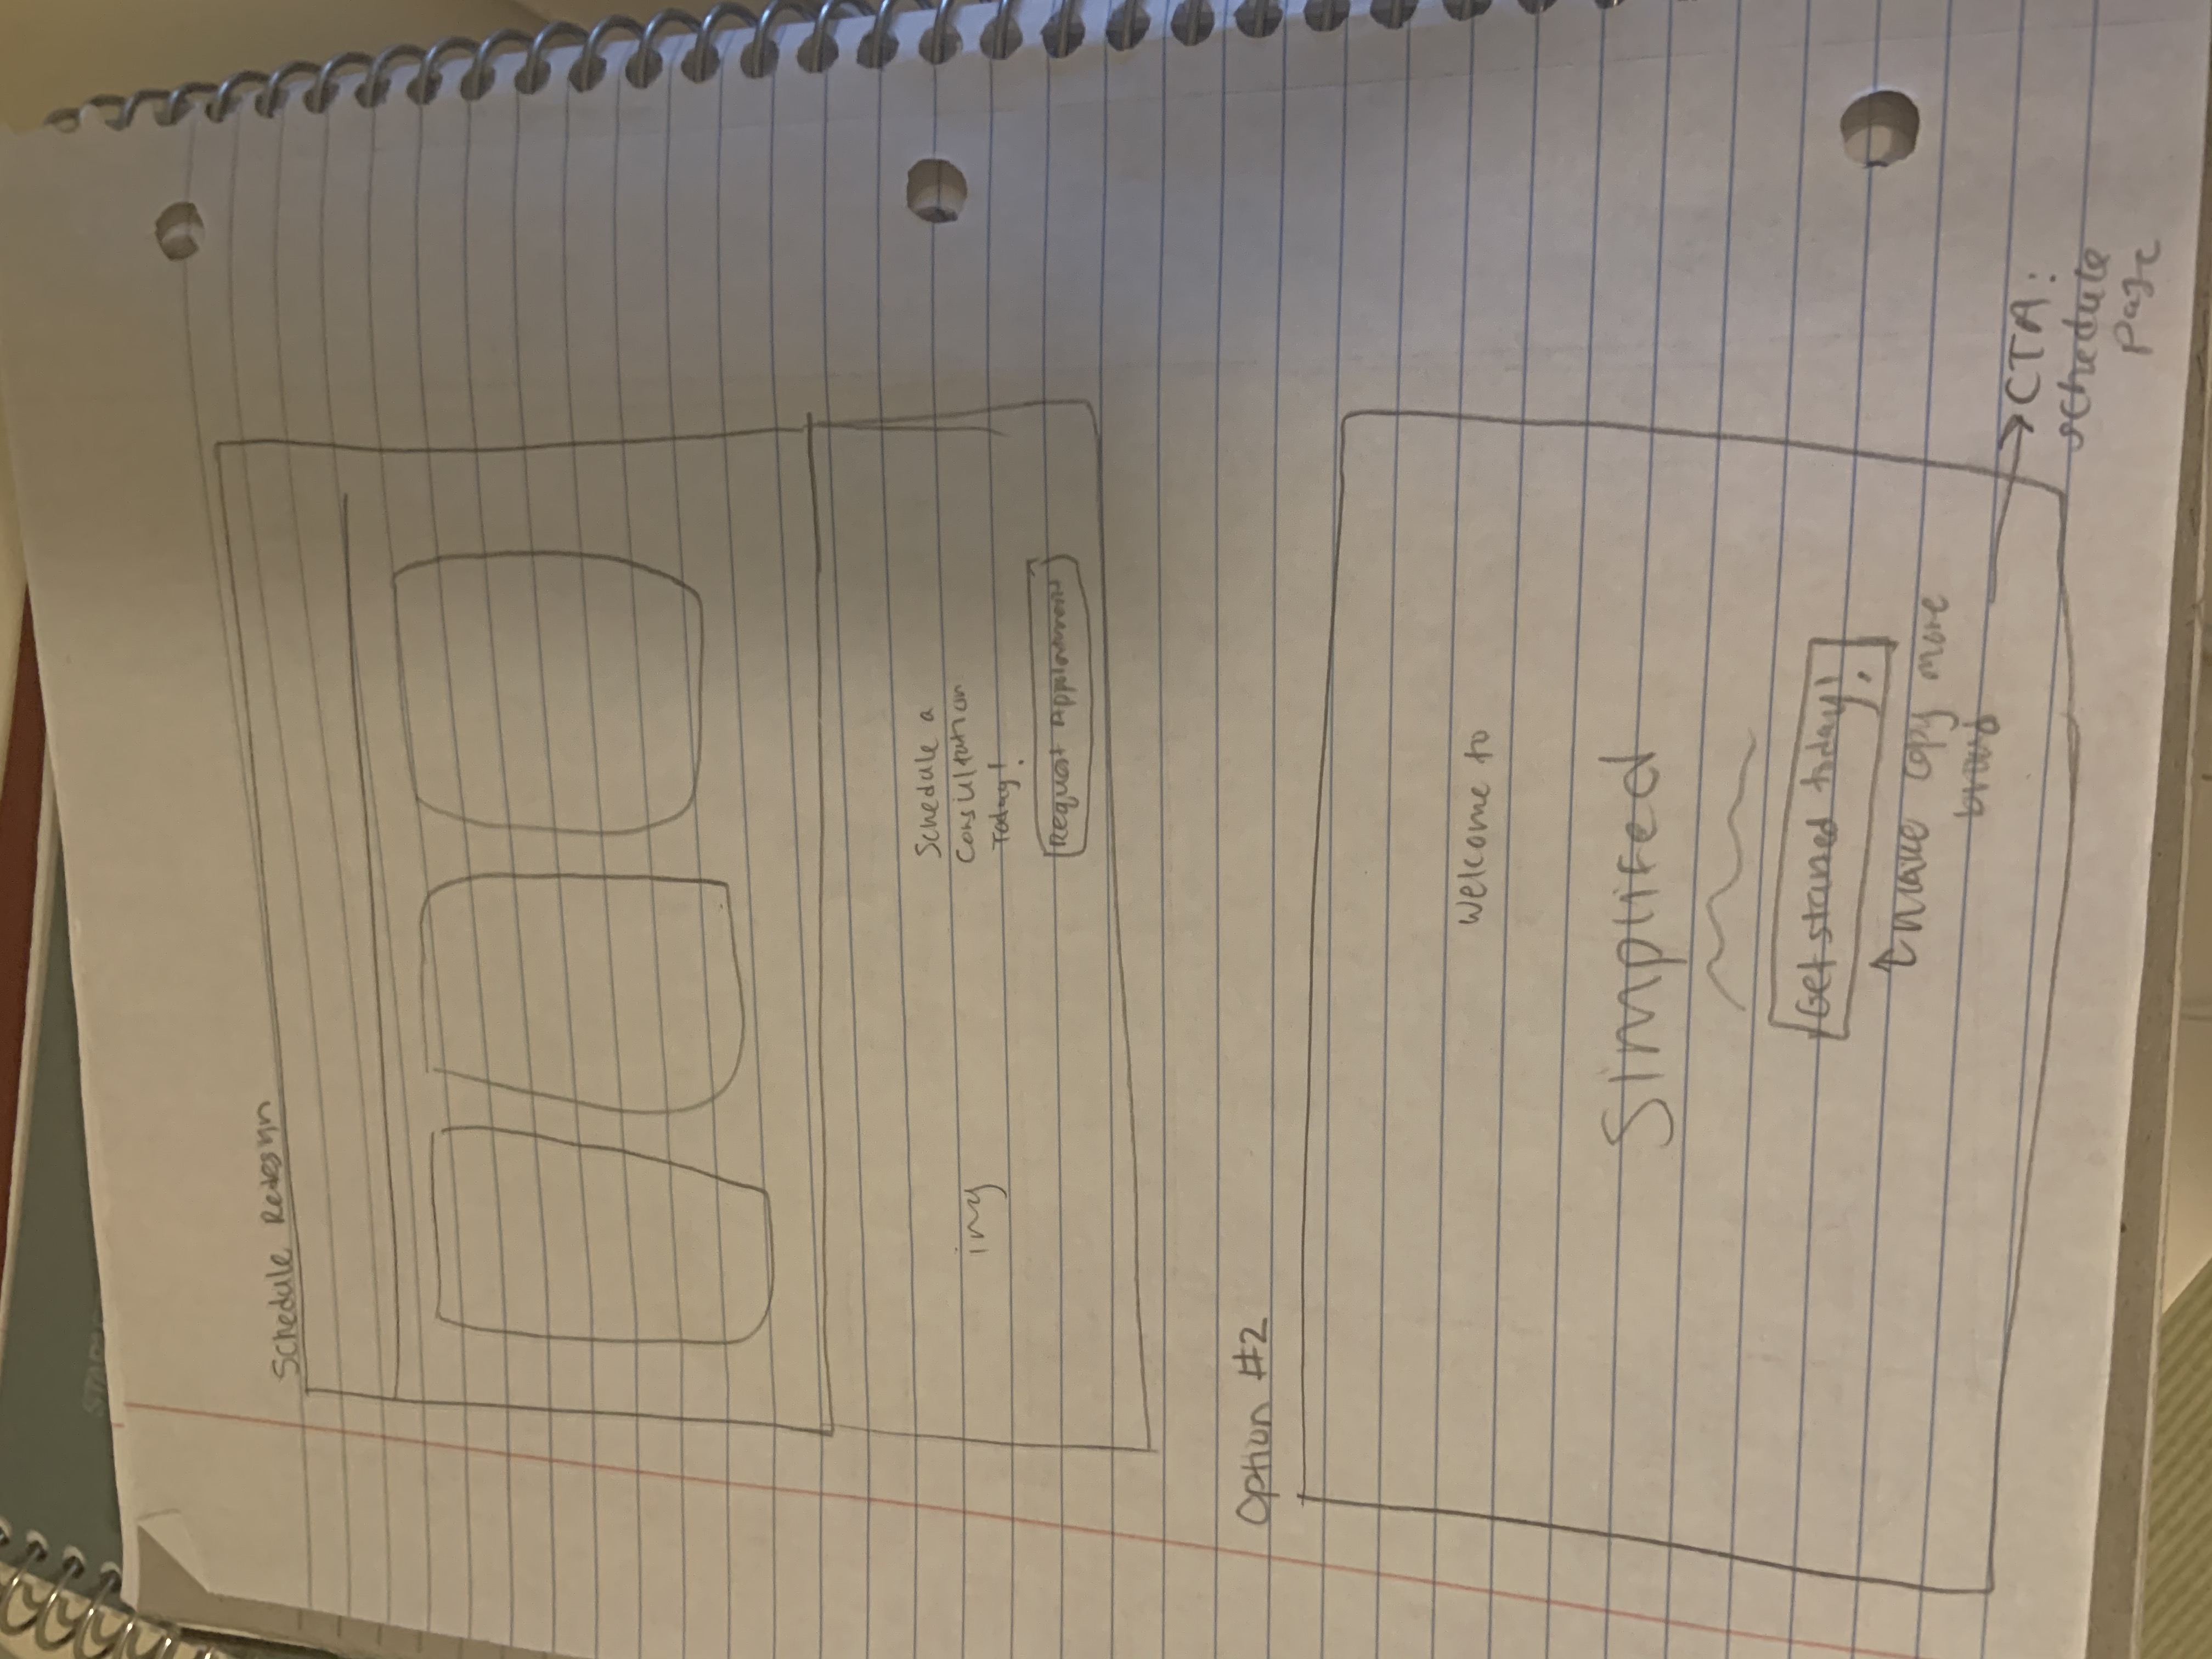 Schedule Redesign
img
Schedule a
Consultation
Today!
Request Appointment
Option #2
Welcome to
Simplifed
Get started today!
make copy more
broad
CTA:
schedule
page